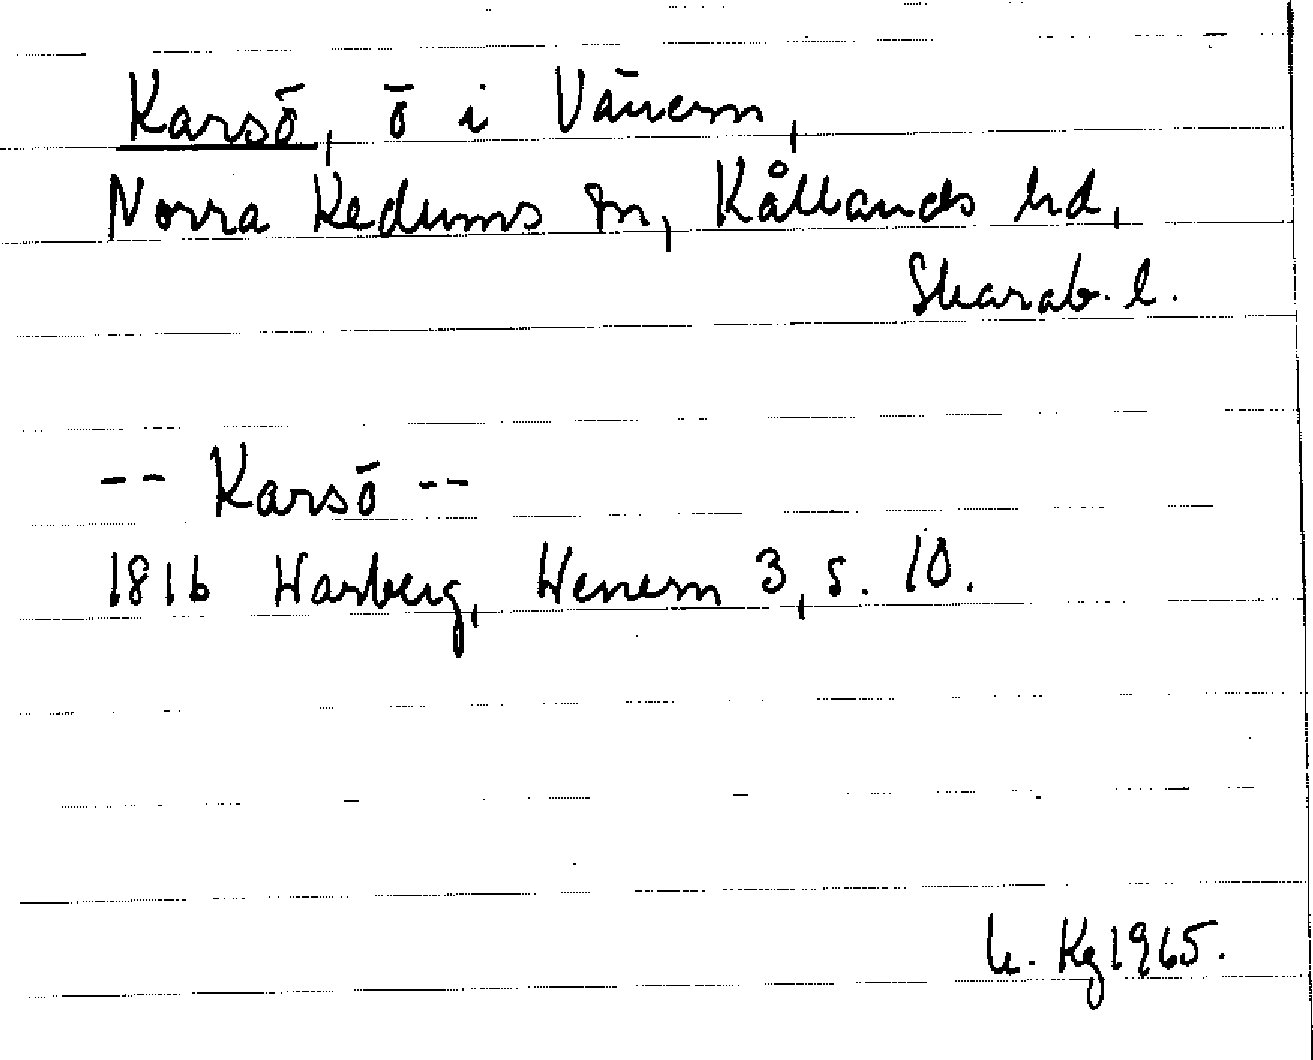 Karsö, ö i Vänern,
Norra Kedums sn, Kållands hd,
Skarab. l.
-- Karsö --
1816 Warberg, Wenern 3, s. 10.
Kg 1965.